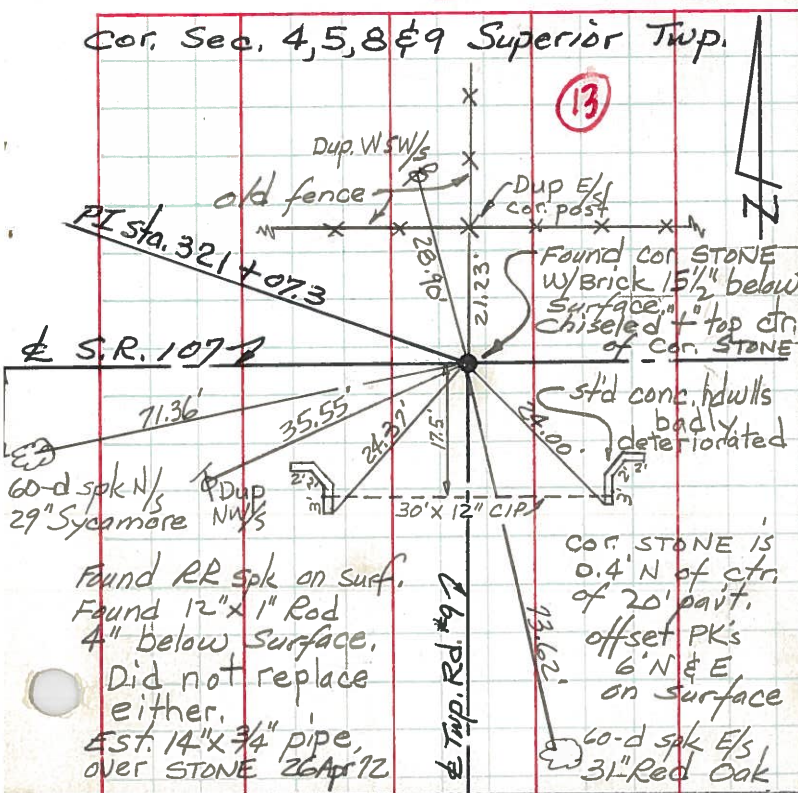 Cor. Sec. 4,5,8 & 9 Superior Twp.
13
Dup. WSW/s
old fence
Dup E/s
cor. post
N
PI sta. 321 + 07.3
28.90'
21.23'
Found cor STONE
W/Brick 15½" below
surface.
Chiseled "+" top ctr.
of Cor. STONE
℄ S.R. 107
71.36'
35.55'
24.37'
17.5'
24.00'
st'd conc. hdwlls
badly
deteriorated
60-d spk N/s
29" Sycamore
Dup
NW/s
2' 2' 3'
30' x 12" CIP
2' 2' 3'
Found RR spk on surf.
Found 12" x 1" Rod
4" below surface.
Did not replace
either.
Est. 14" x ¾" pipe,
over STONE 26Apr72
℄ Twp. Rd. #9
73.62'
cor. STONE is
0.4' N of ctr.
of 20' pavt.
offset PK's
6' N & E
on surface
60-d spk E/s
31" Red Oak